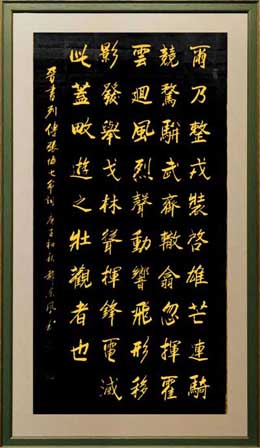 爾乃整戎裝啓雄芒連騎
競騖駢武齊轍翕忽揮霍
雲迴風烈聲動響飛形移
影發舉戈林聳揮鋒電滅
此蓋畋遊之壯觀者也
晉書列傳張協七命詞 庚子初秋